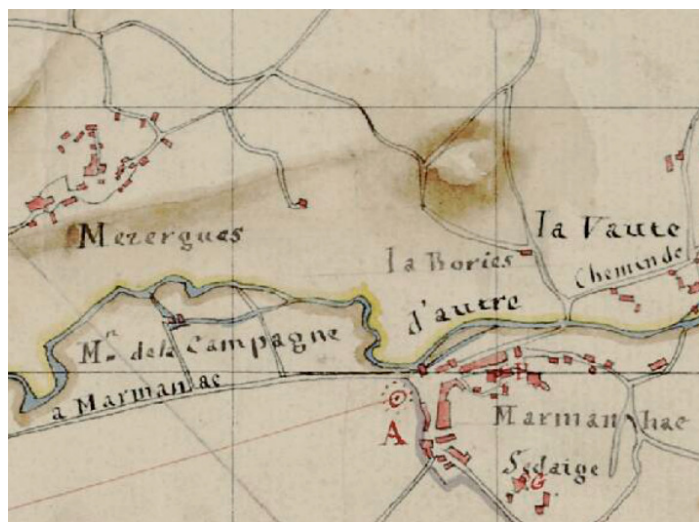 Mezergues
la Vaute
la Bories
Chemin de
d'autre
Mn. de la Campagne
a Marmaniac
A
H
Marmanhac
Sedaige
G